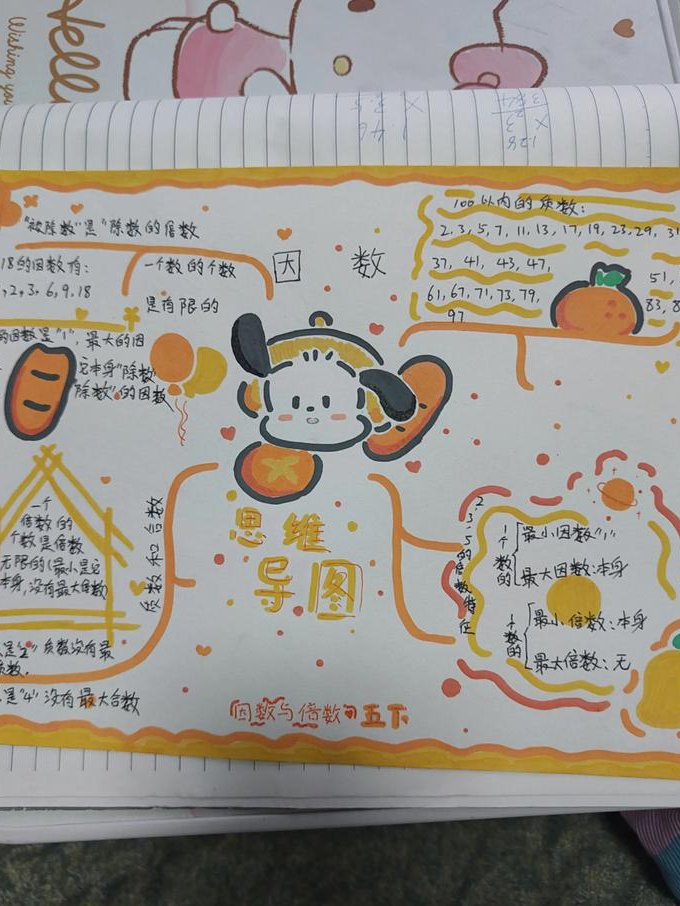 Hello
Wishing you
"被除数"是"除数的倍数
因 数
18的因数有:
,2,3,6,9,18
一个数的个数
是有限的
的因数是"1",最大的因
本身"除数"
除数"的因数
100以内的质数:
2,3,5,7,11,13,17,19,23,29,31
37,41,43,47,
51,
61,67,71,73,79,
83,8
97
一个
倍数的
个数是倍数
无限的(最小是它
本身,没有最大倍数)
质数和合数
是"2"质数没有最
质数.
是"4"没有最大合数
思维
导图
2.3.5的倍数特征
1个数的
最小因数"1"
最大因数:本身
个数的
最小倍数:本身
最大倍数:无
因数与倍数 五下